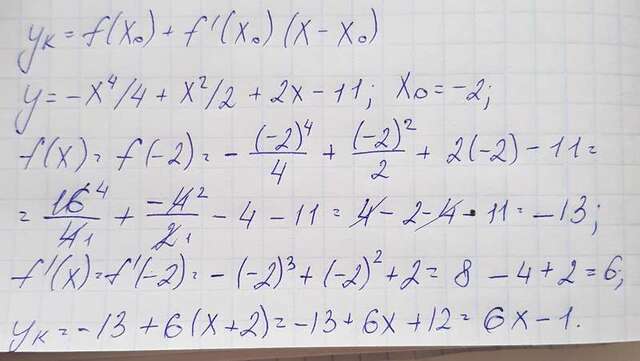 yₖ = f(x₀) + f'(x₀)(x - x₀)
y = -x⁴/4 + x²/2 + 2x - 11; x₀ = -2;
f(x) = f(-2) = - (-2)⁴/4 + (-2)²/2 + 2(-2) - 11 =
= 16⁴/4₁ + -4²/2₁ - 4 - 11 = 4 - 2 - 4 - 11 = -13;
f'(x) = f'(-2) = -(-2)³ + (-2)² + 2 = 8 - 4 + 2 = 6;
yₖ = -13 + 6(x + 2) = -13 + 6x + 12 = 6x - 1.